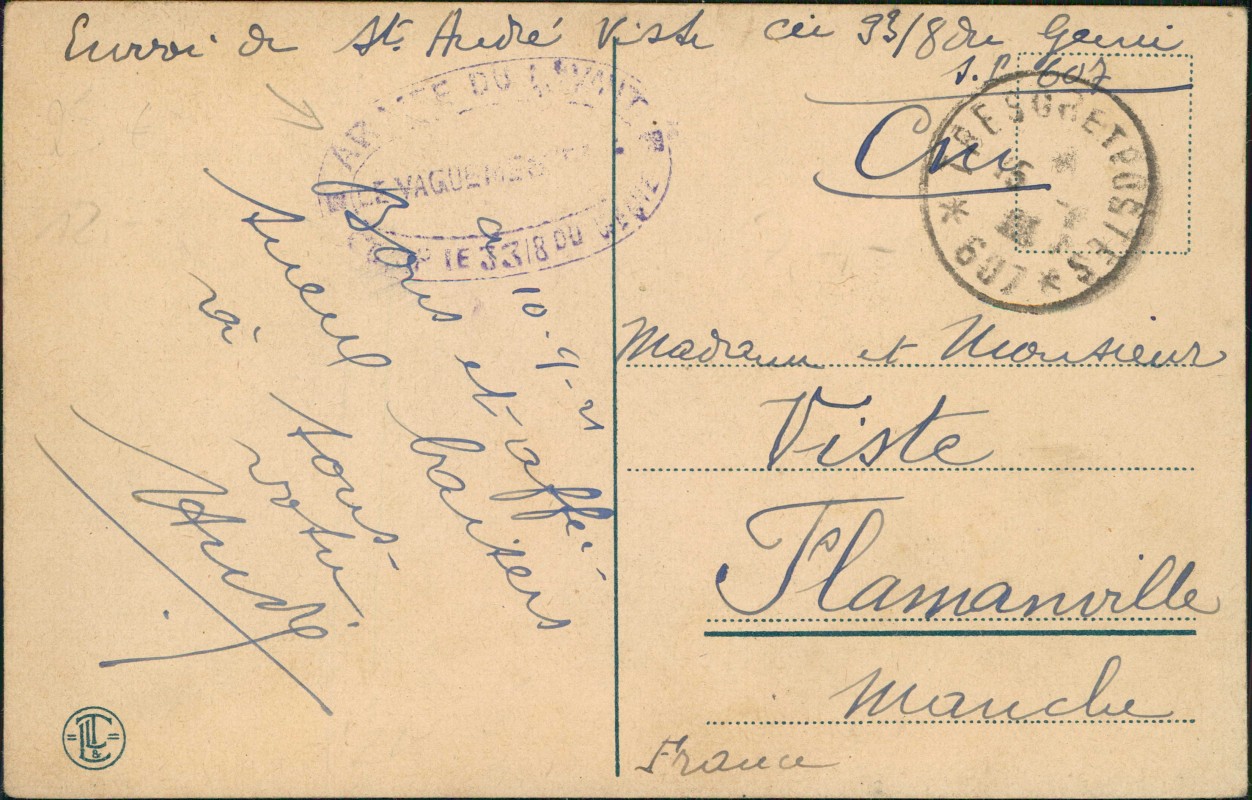 Envoi de St. André Viste Cie 33/8 du Génie
S.P. 607
Cuy
ARMEE DU LEVANT
LE VAGUEMESTRE
CIE 33/8 DU GENIE
TRESOR ET POSTES
15
* 607 *
a
10-9-21
Bons et affé-
tueux baisers
à
tous.
votre
André
Madame et Monsieur
Viste
Flamanville
Manche
France
L & T